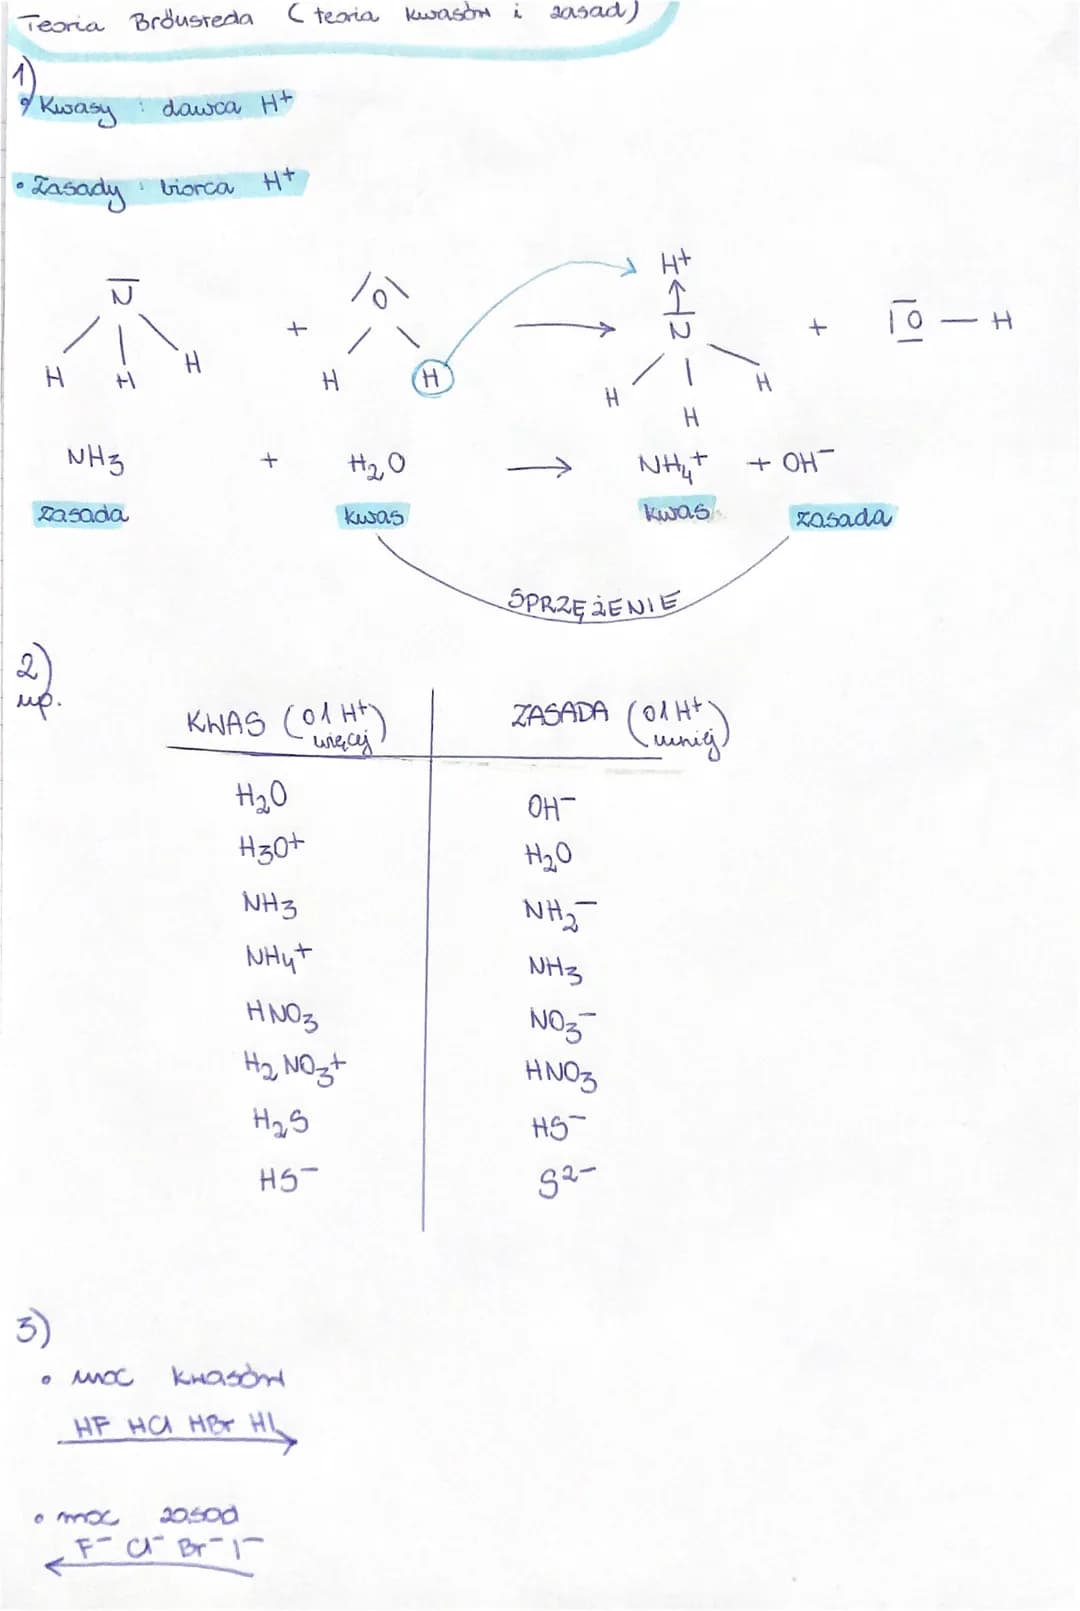 Teoria Brönsteda (teoria kwasów i zasad)
1)
• Kwasy : dawca H+
• Zasady : biorca H+
H+
N + O → N + O — H
H H H H H H H H
NH3 + H2O → NH4+ + OH-
zasada kwas kwas zasada
SPRZĘŻENIE
2)
np.
KWAS (o 1 H+ więcej) ZASADA (o 1 H+ mniej)
H2O OH-
H3O+ H2O
NH3 NH2-
NH4+ NH3
HNO3 NO3-
H2NO3+ HNO3
H2S HS-
HS- S2-
3)
• moc kwasów
HF HCl HBr HI
• moc zasad
F- Cl- Br- I-